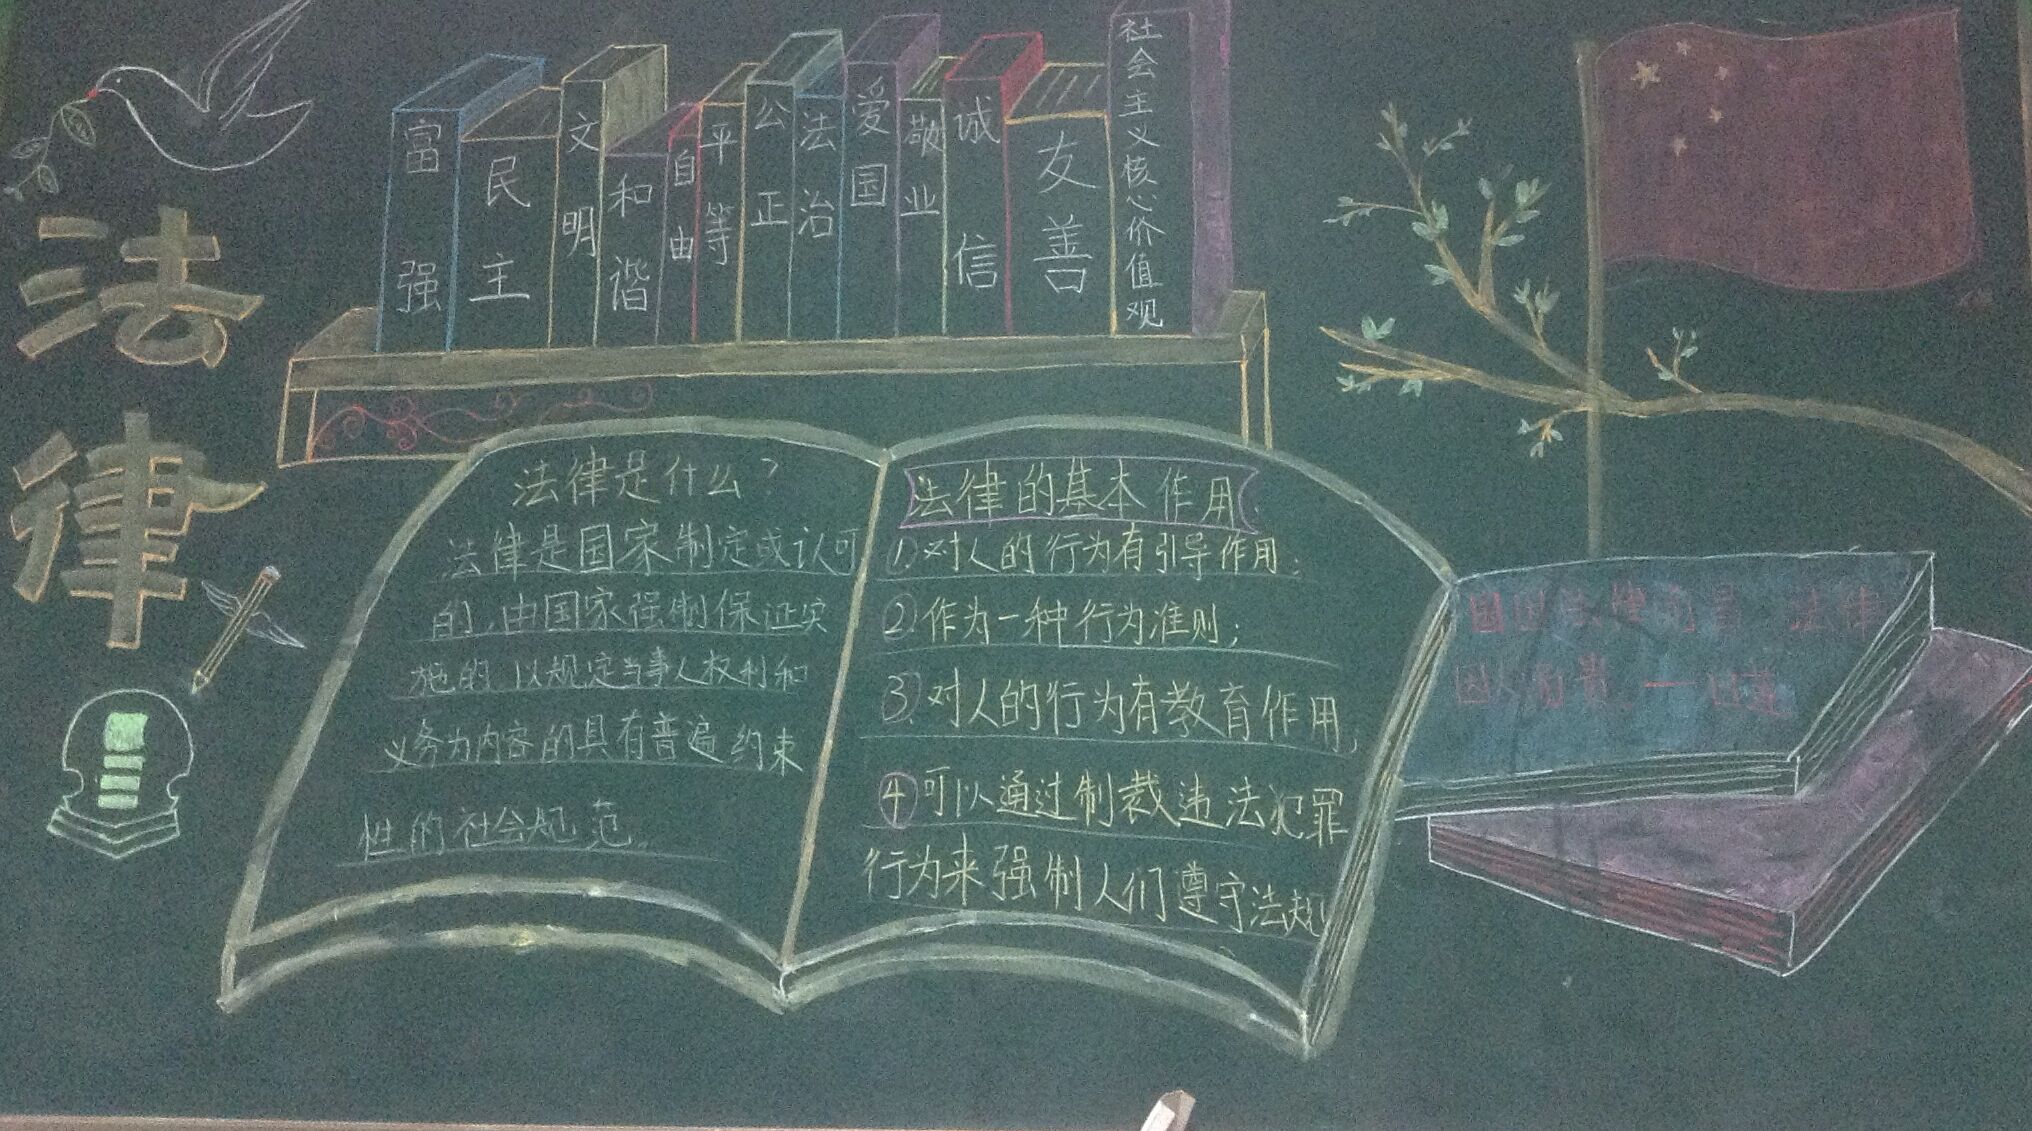 法律
富强
民主
文明
和谐
自由
平等
公正
法治
爱国
敬业
诚信
友善
社会主义核心价值观
法律是什么?
法律是国家制定或认可
的,由国家强制保证实
施的,以规定当事人权利和
义务为内容的具有普遍约束
性的社会规范。
法律的基本作用:
①对人的行为有引导作用;
②作为一种行为准则;
③对人的行为有教育作用,
④可以通过制裁违法犯罪
行为来强制人们遵守法规
法律